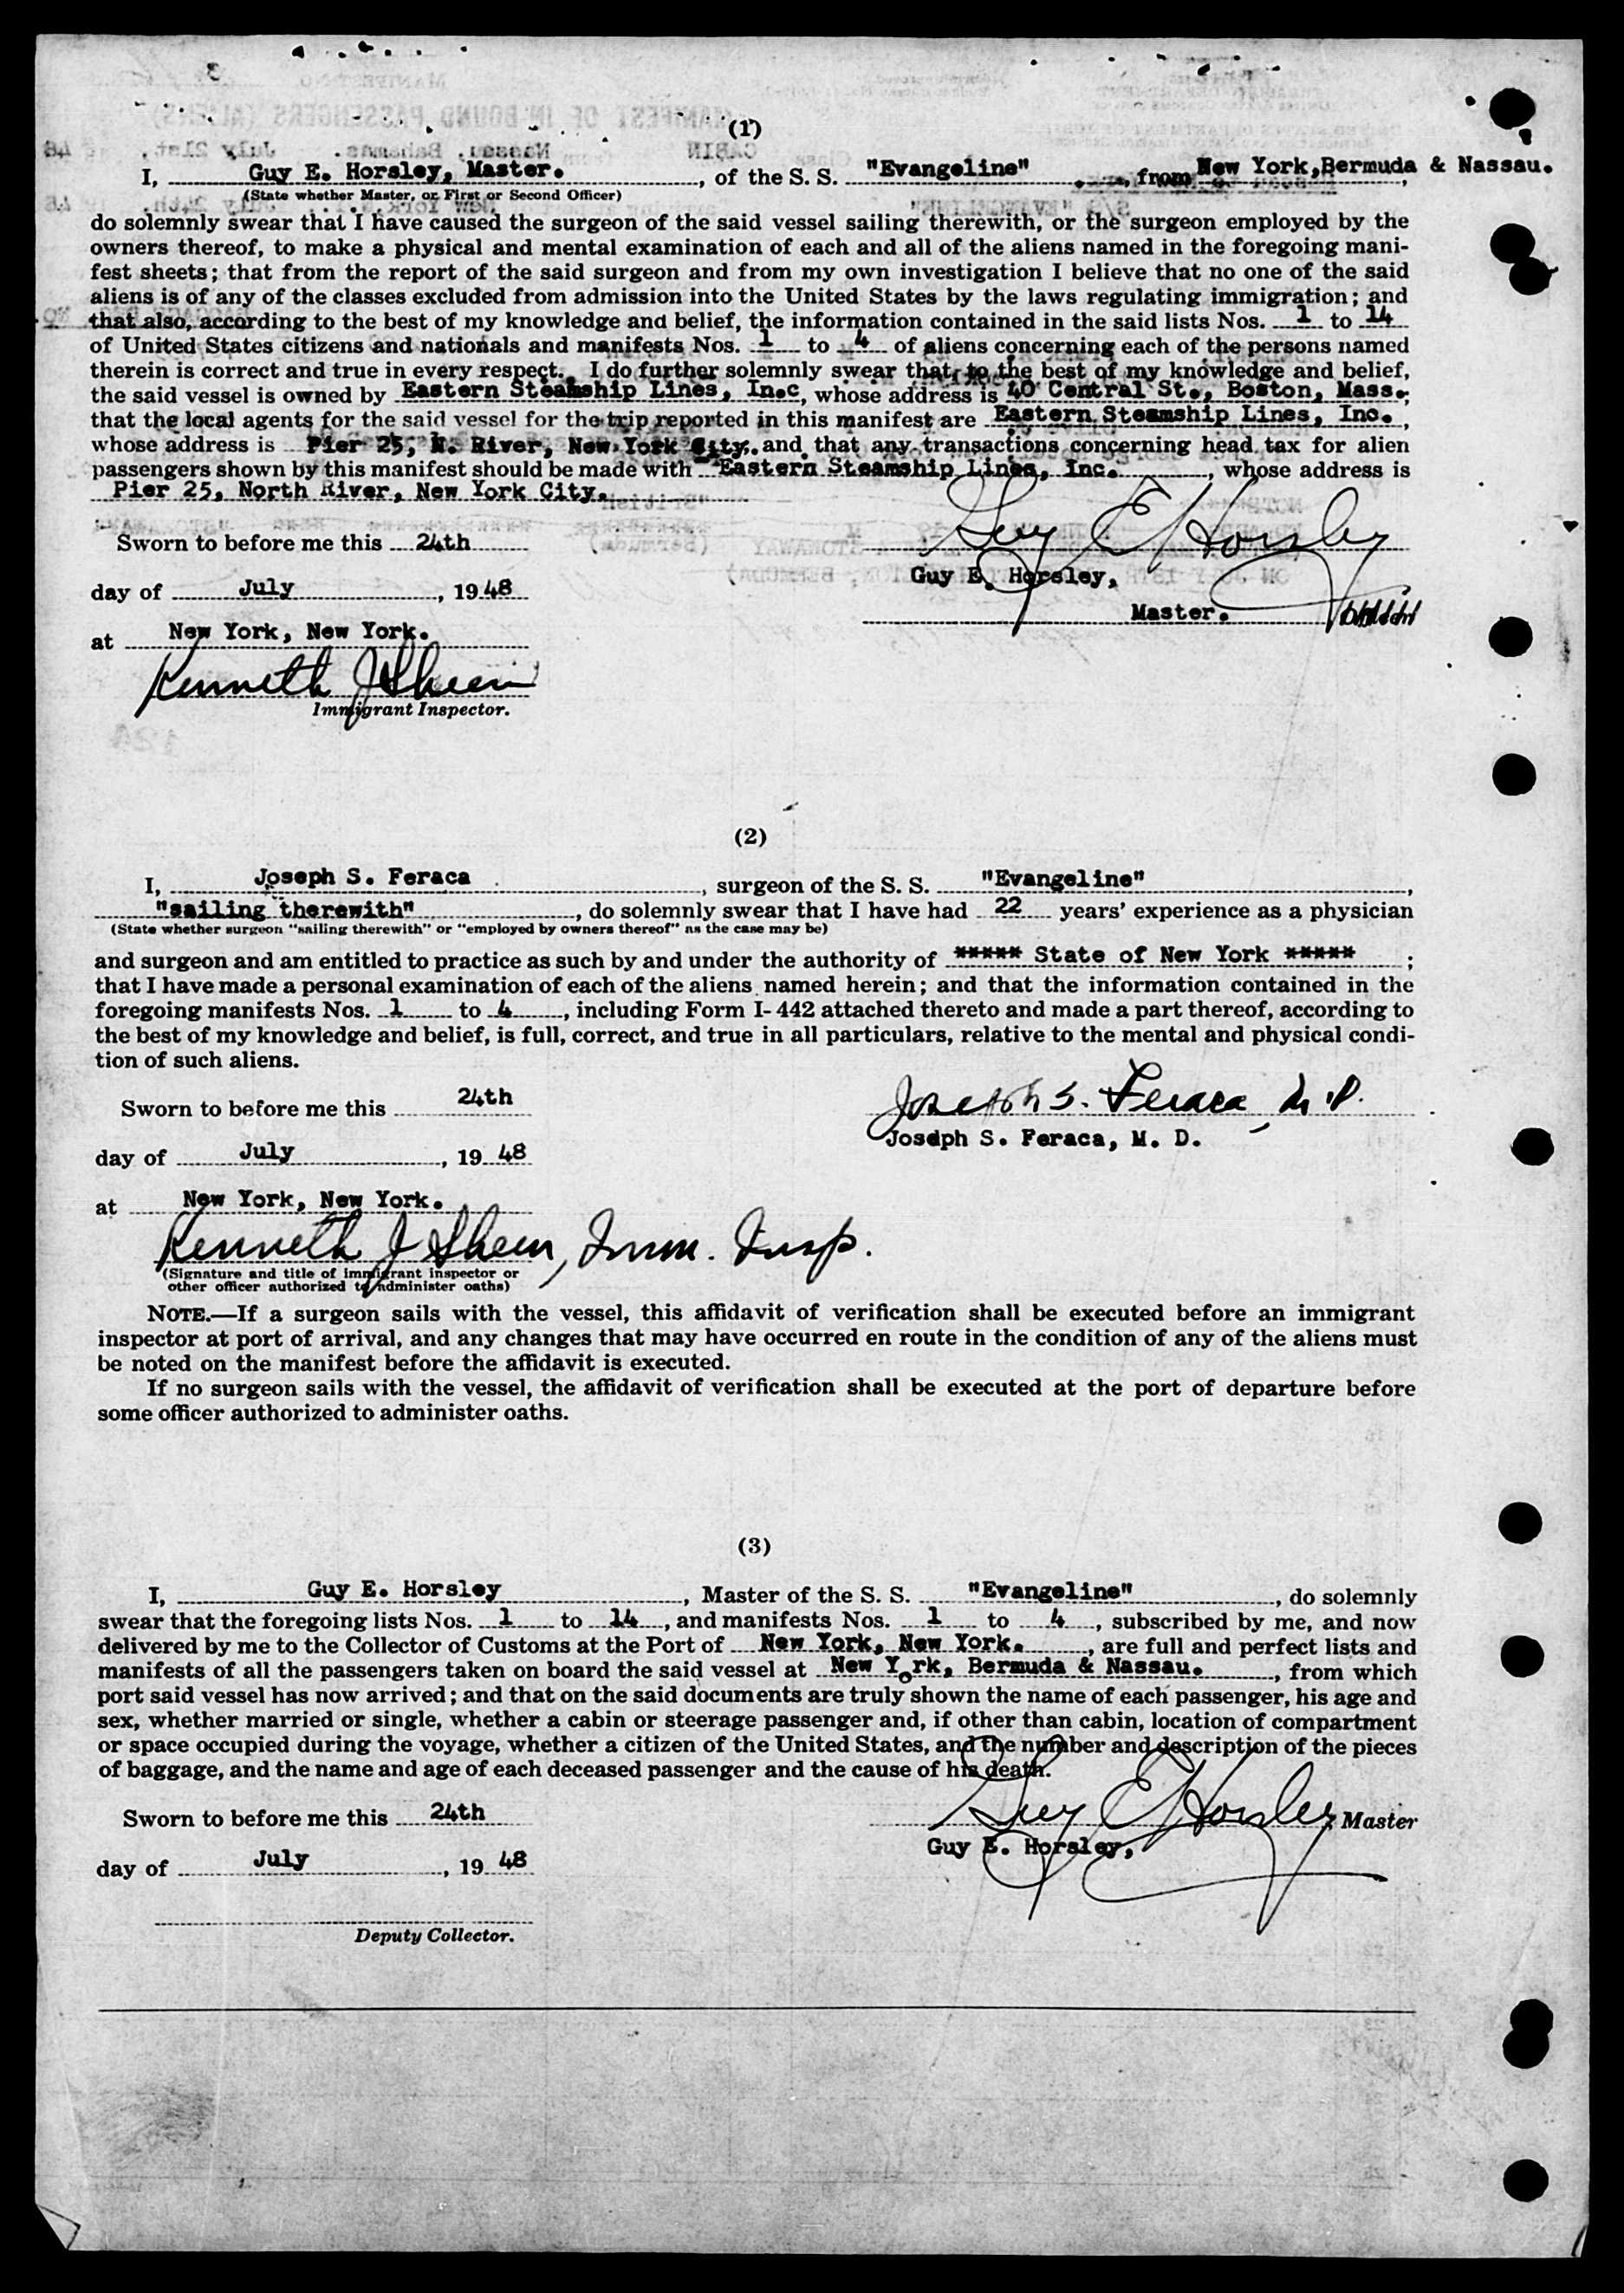 (1)
I, Guy E. Horsley, Master. , of the S. S. "Evangeline" , from New York,Bermuda & Nassau.
(State whether Master, or First or Second Officer)
do solemnly swear that I have caused the surgeon of the said vessel sailing therewith, or the surgeon employed by the
owners thereof, to make a physical and mental examination of each and all of the aliens named in the foregoing mani-
fest sheets; that from the report of the said surgeon and from my own investigation I believe that no one of the said
aliens is of any of the classes excluded from admission into the United States by the laws regulating immigration; and
that also, according to the best of my knowledge and belief, the information contained in the said lists Nos. 1 to 14
of United States citizens and nationals and manifests Nos. 1 to 4 of aliens concerning each of the persons named
therein is correct and true in every respect. I do further solemnly swear that, to the best of my knowledge and belief,
the said vessel is owned by Eastern Steamship Lines, In.c, whose address is 40 Central St., Boston, Mass.;
that the local agents for the said vessel for the trip reported in this manifest are Eastern Steamship Lines, Inc. ,
whose address is Pier 25, N. River, New York City. and that any transactions concerning head tax for alien
passengers shown by this manifest should be made with Eastern Steamship Lines, Inc. , whose address is
Pier 25, North River, New York City.
Guy E Horsley
Sworn to before me this 24th
Guy E. Horsley,
day of July , 19 48
Master.
at New York, New York.
Kenneth J Sheen
Immigrant Inspector.
(2)
I, Joseph S. Feraca , surgeon of the S. S. "Evangeline" ,
"sailing therewith" , do solemnly swear that I have had 22 years' experience as a physician
(State whether surgeon "sailing therewith" or "employed by owners thereof" as the case may be)
and surgeon and am entitled to practice as such by and under the authority of ***** State of New York ***** ;
that I have made a personal examination of each of the aliens named herein; and that the information contained in the
foregoing manifests Nos. 1 to 4 , including Form I-442 attached thereto and made a part thereof, according to
the best of my knowledge and belief, is full, correct, and true in all particulars, relative to the mental and physical condi-
tion of such aliens.
Sworn to before me this 24th
Joseph S. Feraca, M.D.
Josdph S. Feraca, M. D.
day of July , 19 48
at New York, New York.
Kenneth J Sheen, Imm. Insp.
(Signature and title of immigrant inspector or
other officer authorized to administer oaths)
NOTE.—If a surgeon sails with the vessel, this affidavit of verification shall be executed before an immigrant
inspector at port of arrival, and any changes that may have occurred en route in the condition of any of the aliens must
be noted on the manifest before the affidavit is executed.
If no surgeon sails with the vessel, the affidavit of verification shall be executed at the port of departure before
some officer authorized to administer oaths.
(3)
I, Guy E. Horsley , Master of the S. S. "Evangeline" , do solemnly
swear that the foregoing lists Nos. 1 to 14 , and manifests Nos. 1 to 4 , subscribed by me, and now
delivered by me to the Collector of Customs at the Port of New York, New York. , are full and perfect lists and
manifests of all the passengers taken on board the said vessel at New York, Bermuda & Nassau. , from which
port said vessel has now arrived; and that on the said documents are truly shown the name of each passenger, his age and
sex, whether married or single, whether a cabin or steerage passenger and, if other than cabin, location of compartment
or space occupied during the voyage, whether a citizen of the United States, and the number and description of the pieces
of baggage, and the name and age of each deceased passenger and the cause of his death.
Sworn to before me this 24th
Guy E Horsley, Master
Guy E. Horsley,
day of July , 19 48
Deputy Collector.